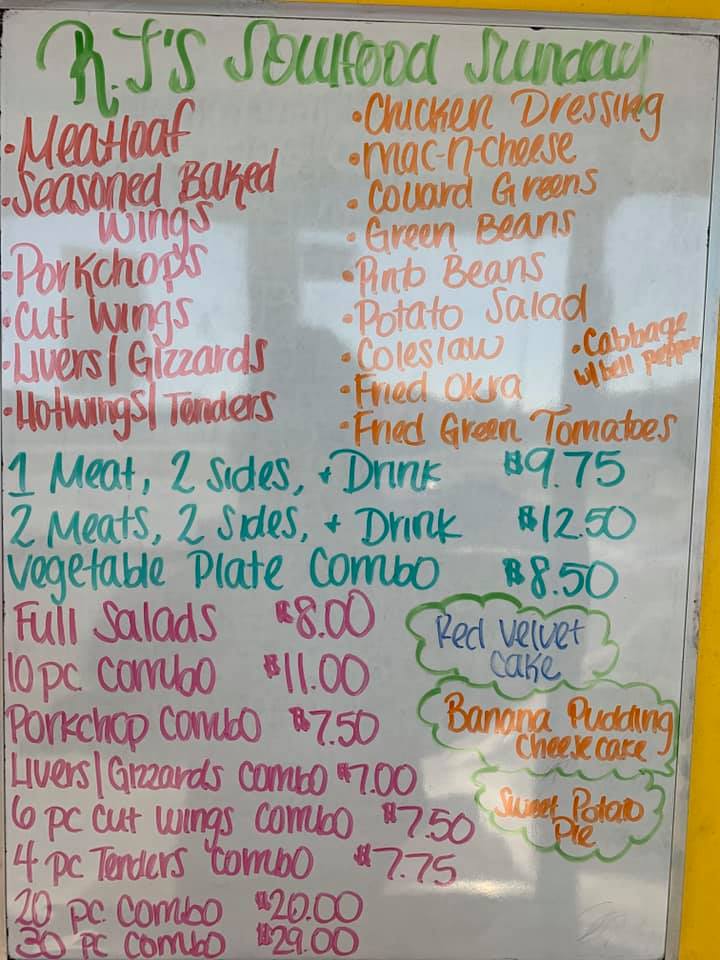 R.J'S Soulfood Sunday
• Meatloaf
• Seasoned Baked
Wings
• Porkchops
• Cut Wings
• Livers/Gizzards
• Hotwings/Tenders
• Chicken Dressing
• Mac-n-Cheese
• Collard Greens
• Green Beans
• Pinto Beans
• Potato Salad
• Coleslaw
• Cabbage
w/ bell pepper
• Fried Okra
• Fried Green Tomatoes
1 Meat, 2 Sides, + Drink $9.75
2 Meats, 2 Sides, + Drink $12.50
Vegetable Plate Combo $8.50
Full Salads $8.00
10 pc Combo $11.00
Porkchop Combo $7.50
Livers/Gizzards Combo $7.00
6 pc Cut Wings Combo $7.50
4 pc Tenders Combo $7.75
20 pc Combo $20.00
30 pc Combo $29.00
Red Velvet
Cake
Banana Pudding
Cheesecake
Sweet Potato
Pie